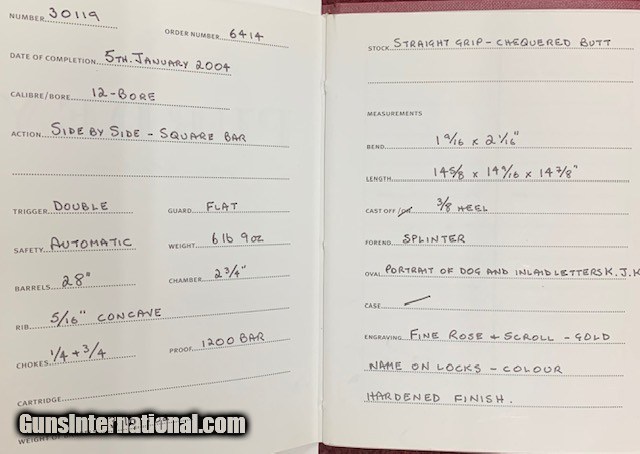 NUMBER 30119
ORDER NUMBER 6414
DATE OF COMPLETION 5TH. JANUARY 2004
CALIBRE/BORE 12-BORE
ACTION SIDE BY SIDE - SQUARE BAR
TRIGGER DOUBLE GUARD FLAT
SAFETY AUTOMATIC WEIGHT 6 lb 9 oz
BARRELS 28" CHAMBER 2 3/4"
RIB 5/16" CONCAVE
CHOKES 1/4 + 3/4 PROOF 1200 BAR
CARTRIDGE
WEIGHT OF
GunsInternational.com
STOCK STRAIGHT GRIP - CHEQUERED BUTT
MEASUREMENTS
BEND 1 9/16 x 2 1/16"
LENGTH 14 5/8 x 14 9/16 x 14 7/8"
CAST OFF/ 3/8 HEEL
FOREND SPLINTER
OVAL PORTRAIT OF DOG AND INLAID LETTERS K.J.K
CASE
ENGRAVING FINE ROSE & SCROLL - GOLD
NAME ON LOCKS - COLOUR
HARDENED FINISH.